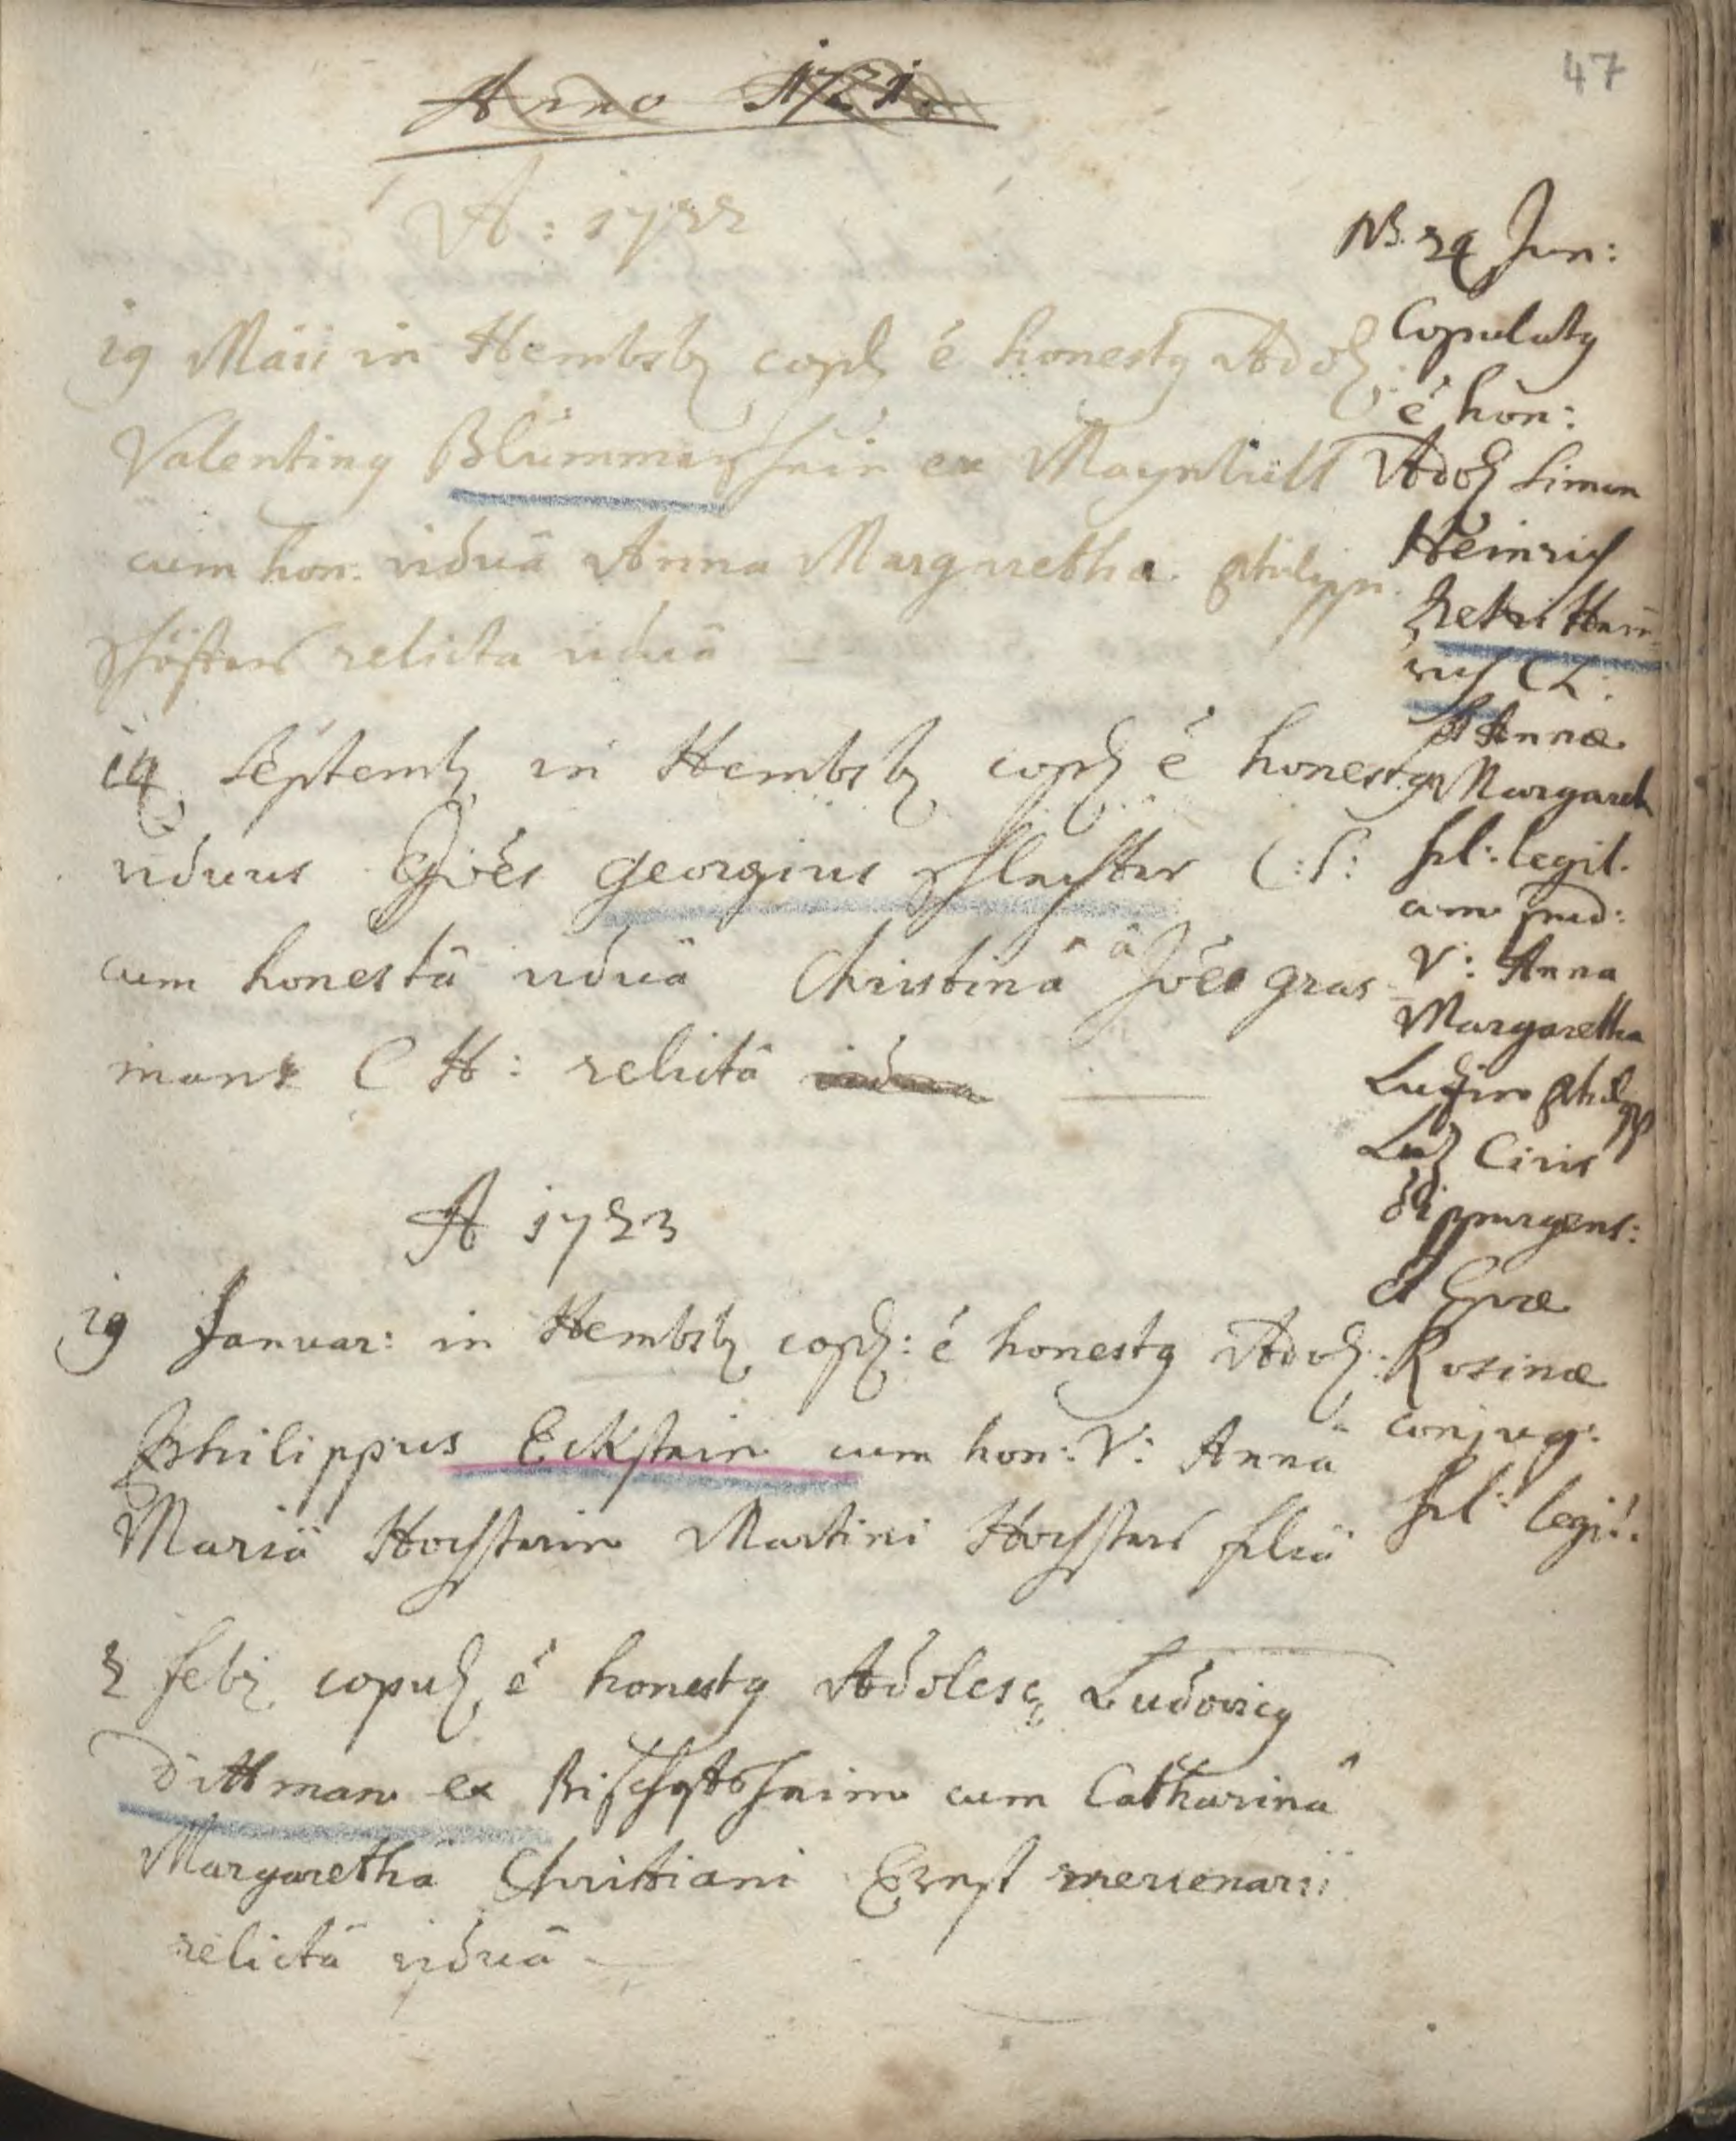 47
Anno 1721.
A: 1722
19 Maii in Hembsb copul é honestg Adol
Valenting Blümmen ex
cum hon: viduâ Anna Margaretha Philipp
relicta viduâ —
14 Septemb in Hembsb copul é honestg
viduus Joës Georgius Schlechter C: S:
cum honestâ viduâ Christinâ â Joës Gras
mans C H: relictâ vidua —
A 1723
19 Januar: in Hembsb copul: é honestg Adol:
Philippus Eckstein cum hon: V: Annâ
Mariâ Martini filiâ
2 febr copul é honestg Adolesc Ludovicg
Dittman ex Bischofsheim cum Catharinâ
Margarethâ Christiani Ernst mercenarii
relictâ viduâ —
NB. 24 Jun:
Copulatg
é hon:
Adol Simon
Heinrich
Petri Hein
rich CL:
et Annæ
Margareth
fil: legit.
cum pud:
V: Anna
Margaretha
Philipp
Civis
et Evæ
Rosinæ
conjug:
fil: legit: